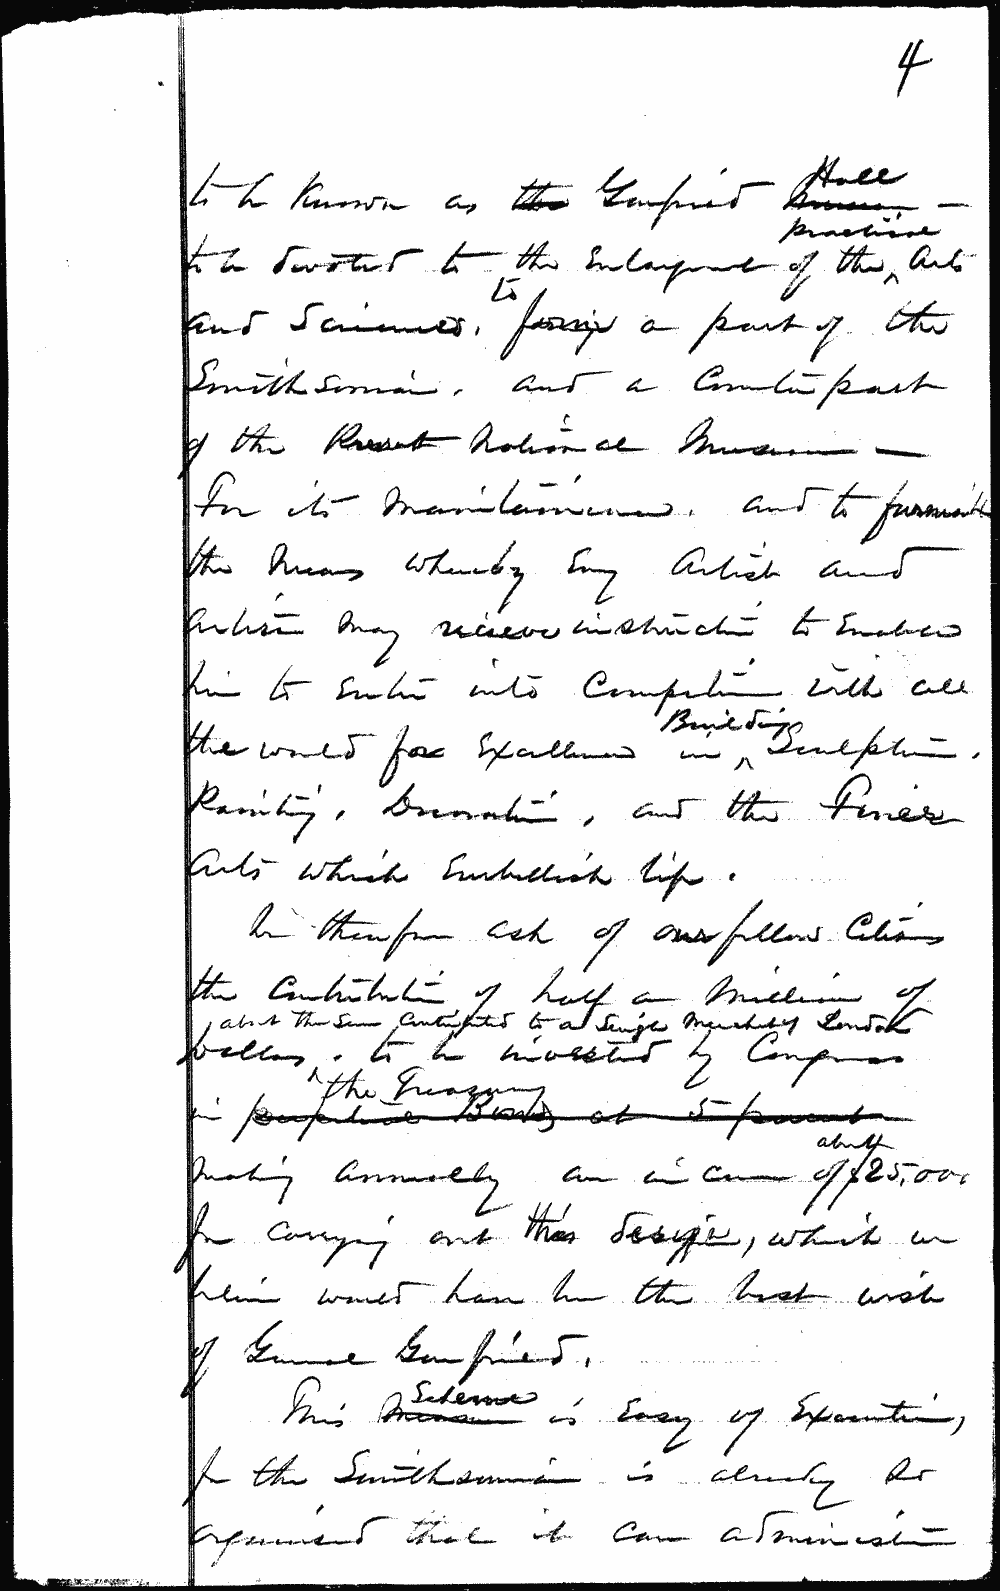 4
Hall
to be Known as the Garfield Museum —
practical
to be devoted to the Enlargement of the Arts
to
and Sciences, form a part of the
Smithsonian, and a Counterpart
of the Present National Museum —
For its Maintainance, and to furnish
the Means whereby Every Artist and
Artisan May recieve instruction to Enable
him to Enter into Competition with all
Building
the world for Excellence in Sculpture,
Painting, Decoration, and the Finer
Arts which Embellish life.
We therefore ask of our fellow Citizens
the Contribution of half a Million of
about the Sum Contributed to a Single Merchant of London
Dollars, to be invested by Congress
the Treasury
in Bonds at 5 percent
about
Making annually an income of $25,000
for carrying out this design, which we
believe would have been the best wish
of General Garfield.
Scheme
This Museum is Easy of Execution,
for the Smithsonian is already so
organised that it can administer